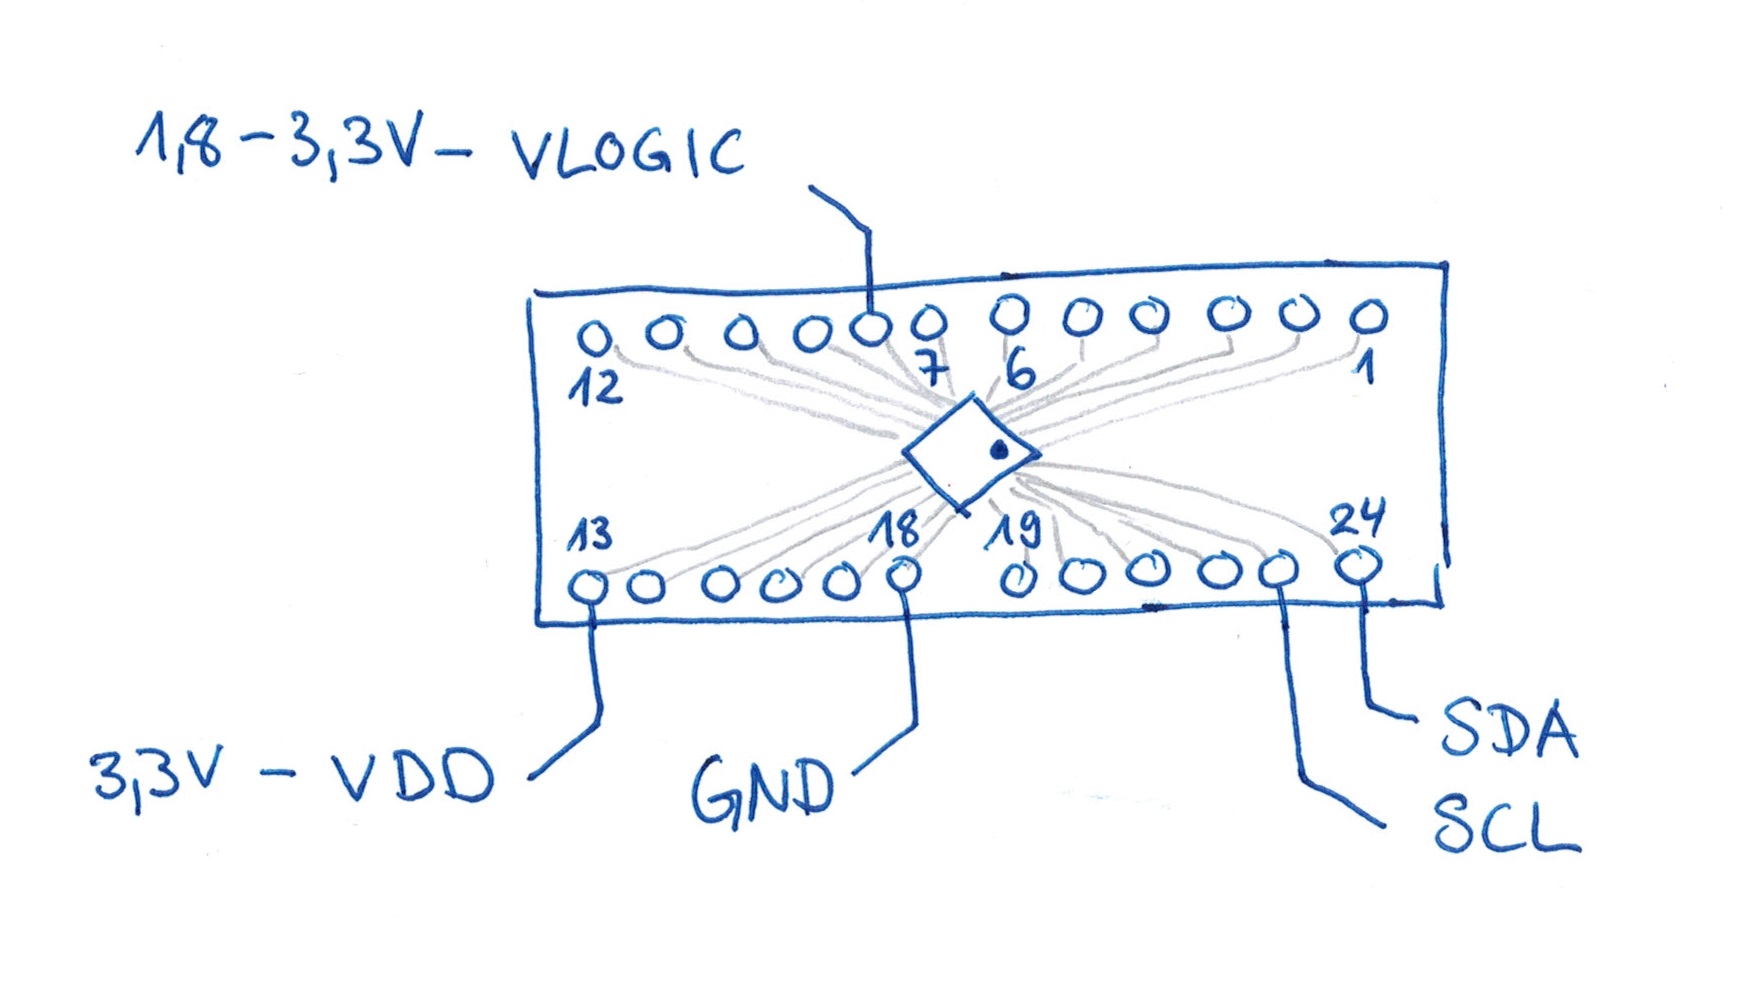 1,8-3,3V- VLOGIC
7 6
12 1
13 18 19 24
SDA
3,3V - VDD GND
SCL